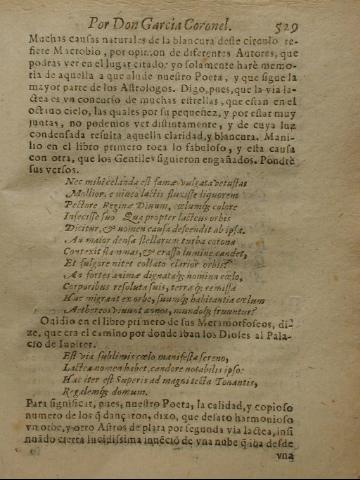 Por Don Garcia Coronel. 529
Muchas causas naturales de la blancura deste circulo re-
fiere Macrobio, por opinion de diferentes Autores, que
podràs ver en el lugar citado: yo solamente harè memo-
ria de aquella a que alude nuestro Poeta, y que sigue la
mayor parte de los Astrologos. Digo, pues, que la via la-
ctea es vn concurso de muchas estrellas, que estan en el
octauo cielo, las quales por su pequeñez, y por estar muy
juntas, no podemos ver distintamente, y de cuya luz
condensada resulta aquella claridad, y blancura. Mani-
lio en el libro primero toca lo fabuloso, y esta causa
con otra, que los Gentiles siguieron engañados. Pondrè
sus versos.
Nec mihi celanda est famæ vulgata vetustas
Mollior, e niueo lactis fluxisse liquorem
Pectore Reginæ Diuum, cœlumq; colore
Infecisse suo. Qua propter lacteus orbis
Dicitur, & nomen causa descendit ab ipsa.
An maior densa stellarum turba corona
Contexit flammas, & crasso lumine candet,
Et fulgore nitet collato clarior orbis?
An fortes animæ dignataq; nomina cœlo,
Corporibus resoluta suis, terræq; remissa
Huc migrant ex orbe, suumq; habitantia cœlum
Aethereos viuunt annos, mundoq; fruuntur?
Ouidio en el libro primero de sus Metamorfoseos, di-
ze, que era el camino por donde iban los Dioses al Pala-
cio de Iupiter.
Est via sublimis cœlo manifesta sereno,
Lactea nomen habet, candore notabilis ipso:
Hac iter est Superis ad magni tecta Tonantis,
Regalemq; domum.
Para significar, pues, nuestro Poeta, la calidad, y copioso
numero de los q̃ dançaron, dixo, que desatò harmonioso
vn orbe, y otro Astros de plata por segunda via lactea, insi
nuàdo cierta lucidissima
de vna nube q̃ iba desde
vna